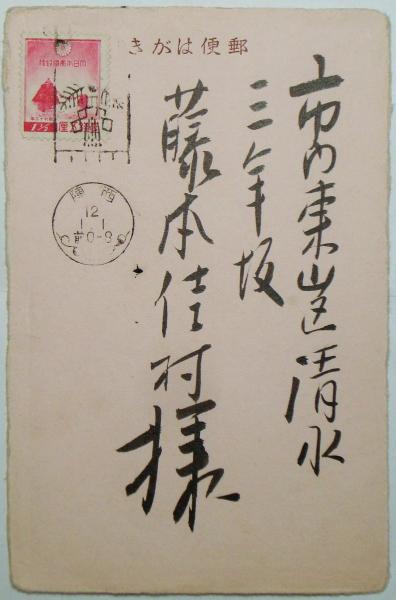 郵便はがき
市内東山区清水
三年坂
藤本佳村様
西陣
12
1.1
前0-8
1½